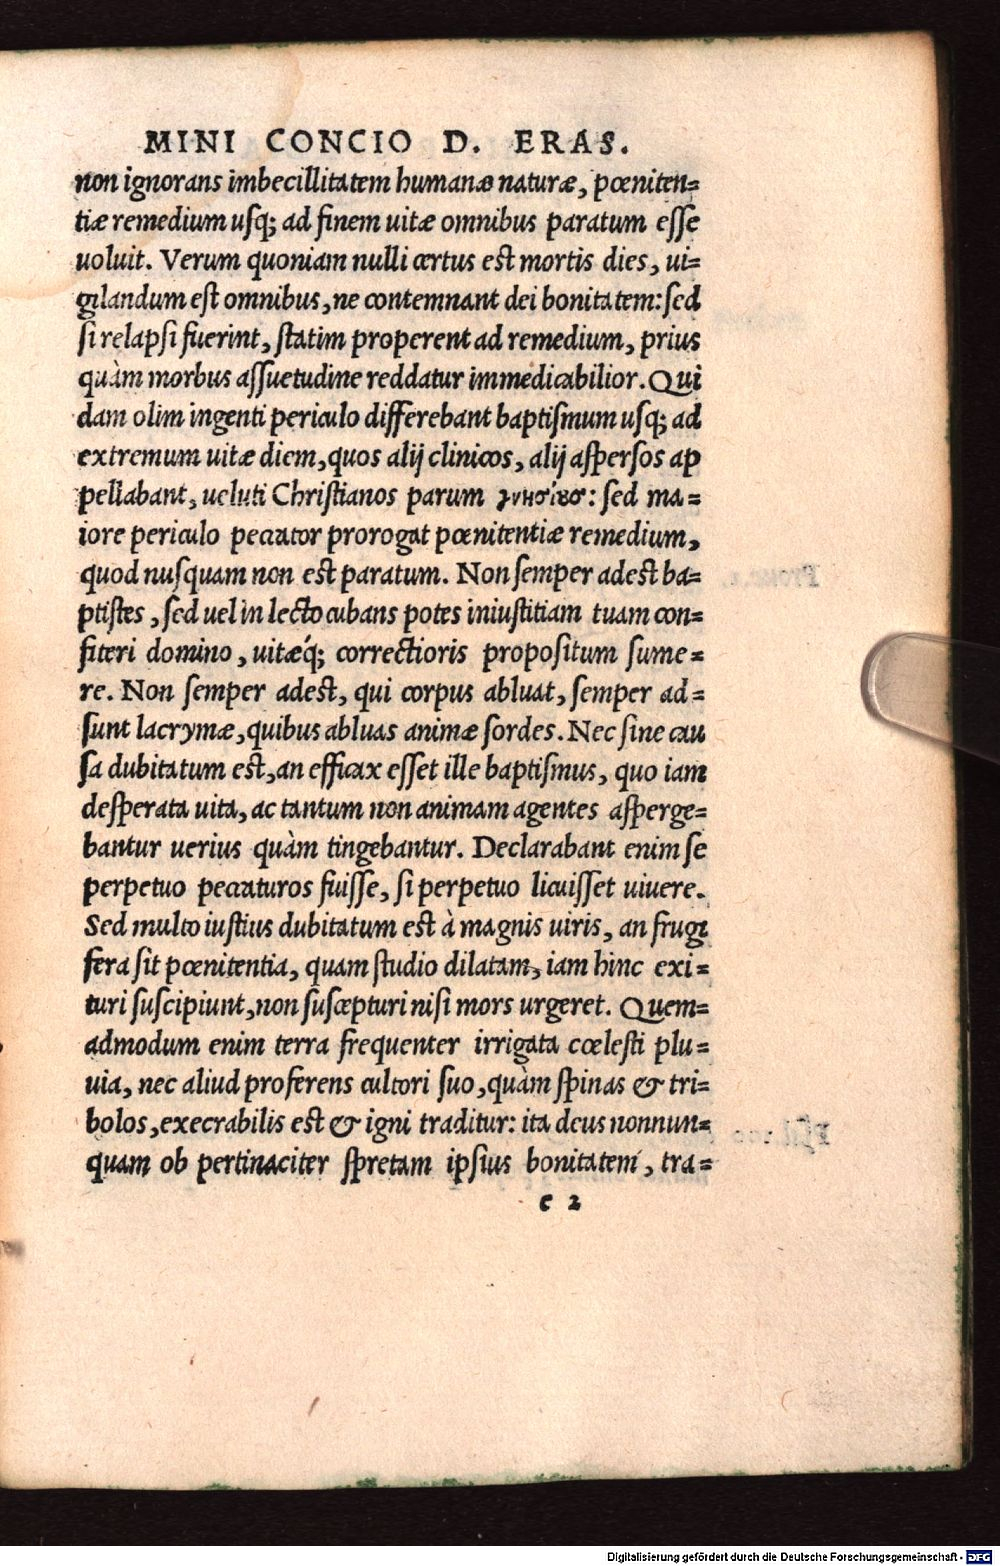 MINI CONCIO D. ERAS.
non ignorans imbecillitatem humanæ naturæ, pœniten=
tiæ remedium usq; ad finem uitæ omnibus paratum esse
uoluit. Verum quoniam nulli certus est mortis dies, ui=
gilandum est omnibus, ne contemnant dei bonitatem: sed
si relapsi fuerint, statim properent ad remedium, prius
quàm morbus assuetudine reddatur immedicabilior. Qui
dam olim ingenti periculo differebant baptismum usq; ad
extremum uitæ diem, quos alij clinicos, alij aspersos ap
pellabant, ueluti Christianos parum γνησίους: sed ma=
iore periculo peccator prorogat pœnitentiæ remedium,
quod nusquam non est paratum. Non semper adest ba=
ptistes, sed uel in lecto cubans potes iniustitiam tuam con=
fiteri domino, uitæq́; correctioris propositum sume=
re. Non semper adest, qui corpus abluat, semper ad=
sunt lacrymæ, quibus abluas animæ sordes. Nec sine cau
sa dubitatum est, an efficax esset ille baptismus, quo iam
desperata uita, ac tantum non animam agentes asperge=
bantur uerius quàm tingebantur. Declarabant enim se
perpetuo peccaturos fuisse, si perpetuo licuisset uiuere.
Sed multo iustius dubitatum est à magnis uiris, an frugi
fera sit pœnitentia, quam studio dilatam, iam hinc exi=
turi suscipiunt, non suscepturi nisi mors urgeret. Quem=
admodum enim terra frequenter irrigata cœlesti plu=
uia, nec aliud proferens cultori suo, quàm spinas & tri=
bolos, execrabilis est & igni traditur: ita deus nonnun=
quam ob pertinaciter spretam ipsius bonitatem, tra=
c 2
Digitalisierung gefördert durch die Deutsche Forschungsgemeinschaft - DFG